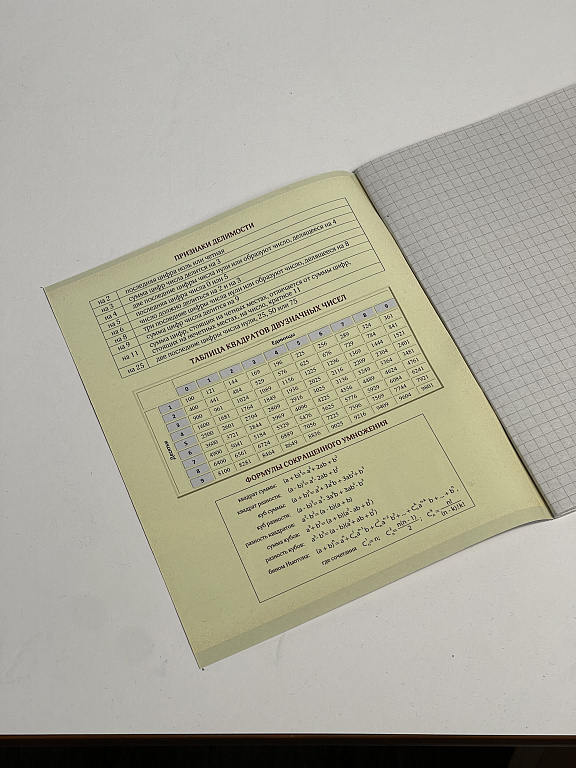 ПРИЗНАКИ ДЕЛИМОСТИ
на 2 последняя цифра ноль или четная
на 3 сумма цифр числа делится на 3
на 4 две последние цифры числа нули или образуют число, делящееся на 4
на 5 последняя цифра числа 0 или 5
на 6 число должно делиться на 2 и на 3
на 8 три последние цифры числа нули или образуют число, делящееся на 8
на 9 сумма цифр числа делится на 9
на 11 сумма цифр, стоящих на четных местах, отличается от суммы цифр,
стоящих на нечетных местах, на число, кратное 11
на 25 две последние цифры числа нули, 25, 50 или 75
ТАБЛИЦА КВАДРАТОВ ДВУЗНАЧНЫХ ЧИСЕЛ
Единицы
Десятки
0 1 2 3 4 5 6 7 8 9
1 100 121 144 169 196 225 256 289 324 361
2 400 441 484 529 576 625 676 729 784 841
3 900 961 1024 1089 1156 1225 1296 1369 1444 1521
4 1600 1681 1764 1849 1936 2025 2116 2209 2304 2401
5 2500 2601 2704 2809 2916 3025 3136 3249 3364 3481
6 3600 3721 3844 3969 4096 4225 4356 4489 4624 4761
7 4900 5041 5184 5329 5476 5625 5776 5929 6084 6241
8 6400 6561 6724 6889 7056 7225 7396 7569 7744 7921
9 8100 8281 8464 8649 8836 9025 9216 9409 9604 9801
ФОРМУЛЫ СОКРАЩЕННОГО УМНОЖЕНИЯ
квадрат суммы: (a + b)²= a²+ 2ab + b²
квадрат разности: (a - b)²= a²- 2ab + b²
куб суммы: (a + b)³= a³+ 3a²b + 3ab²+ b³
куб разности: (a - b)³= a³- 3a²b + 3ab²- b³
разность квадратов: a²- b²= (a - b)(a + b)
сумма кубов: a³+ b³= (a + b)(a²- ab + b²)
разность кубов: a³- b³= (a - b)(a²+ ab + b²)
бином Ньютона:
где сочетания